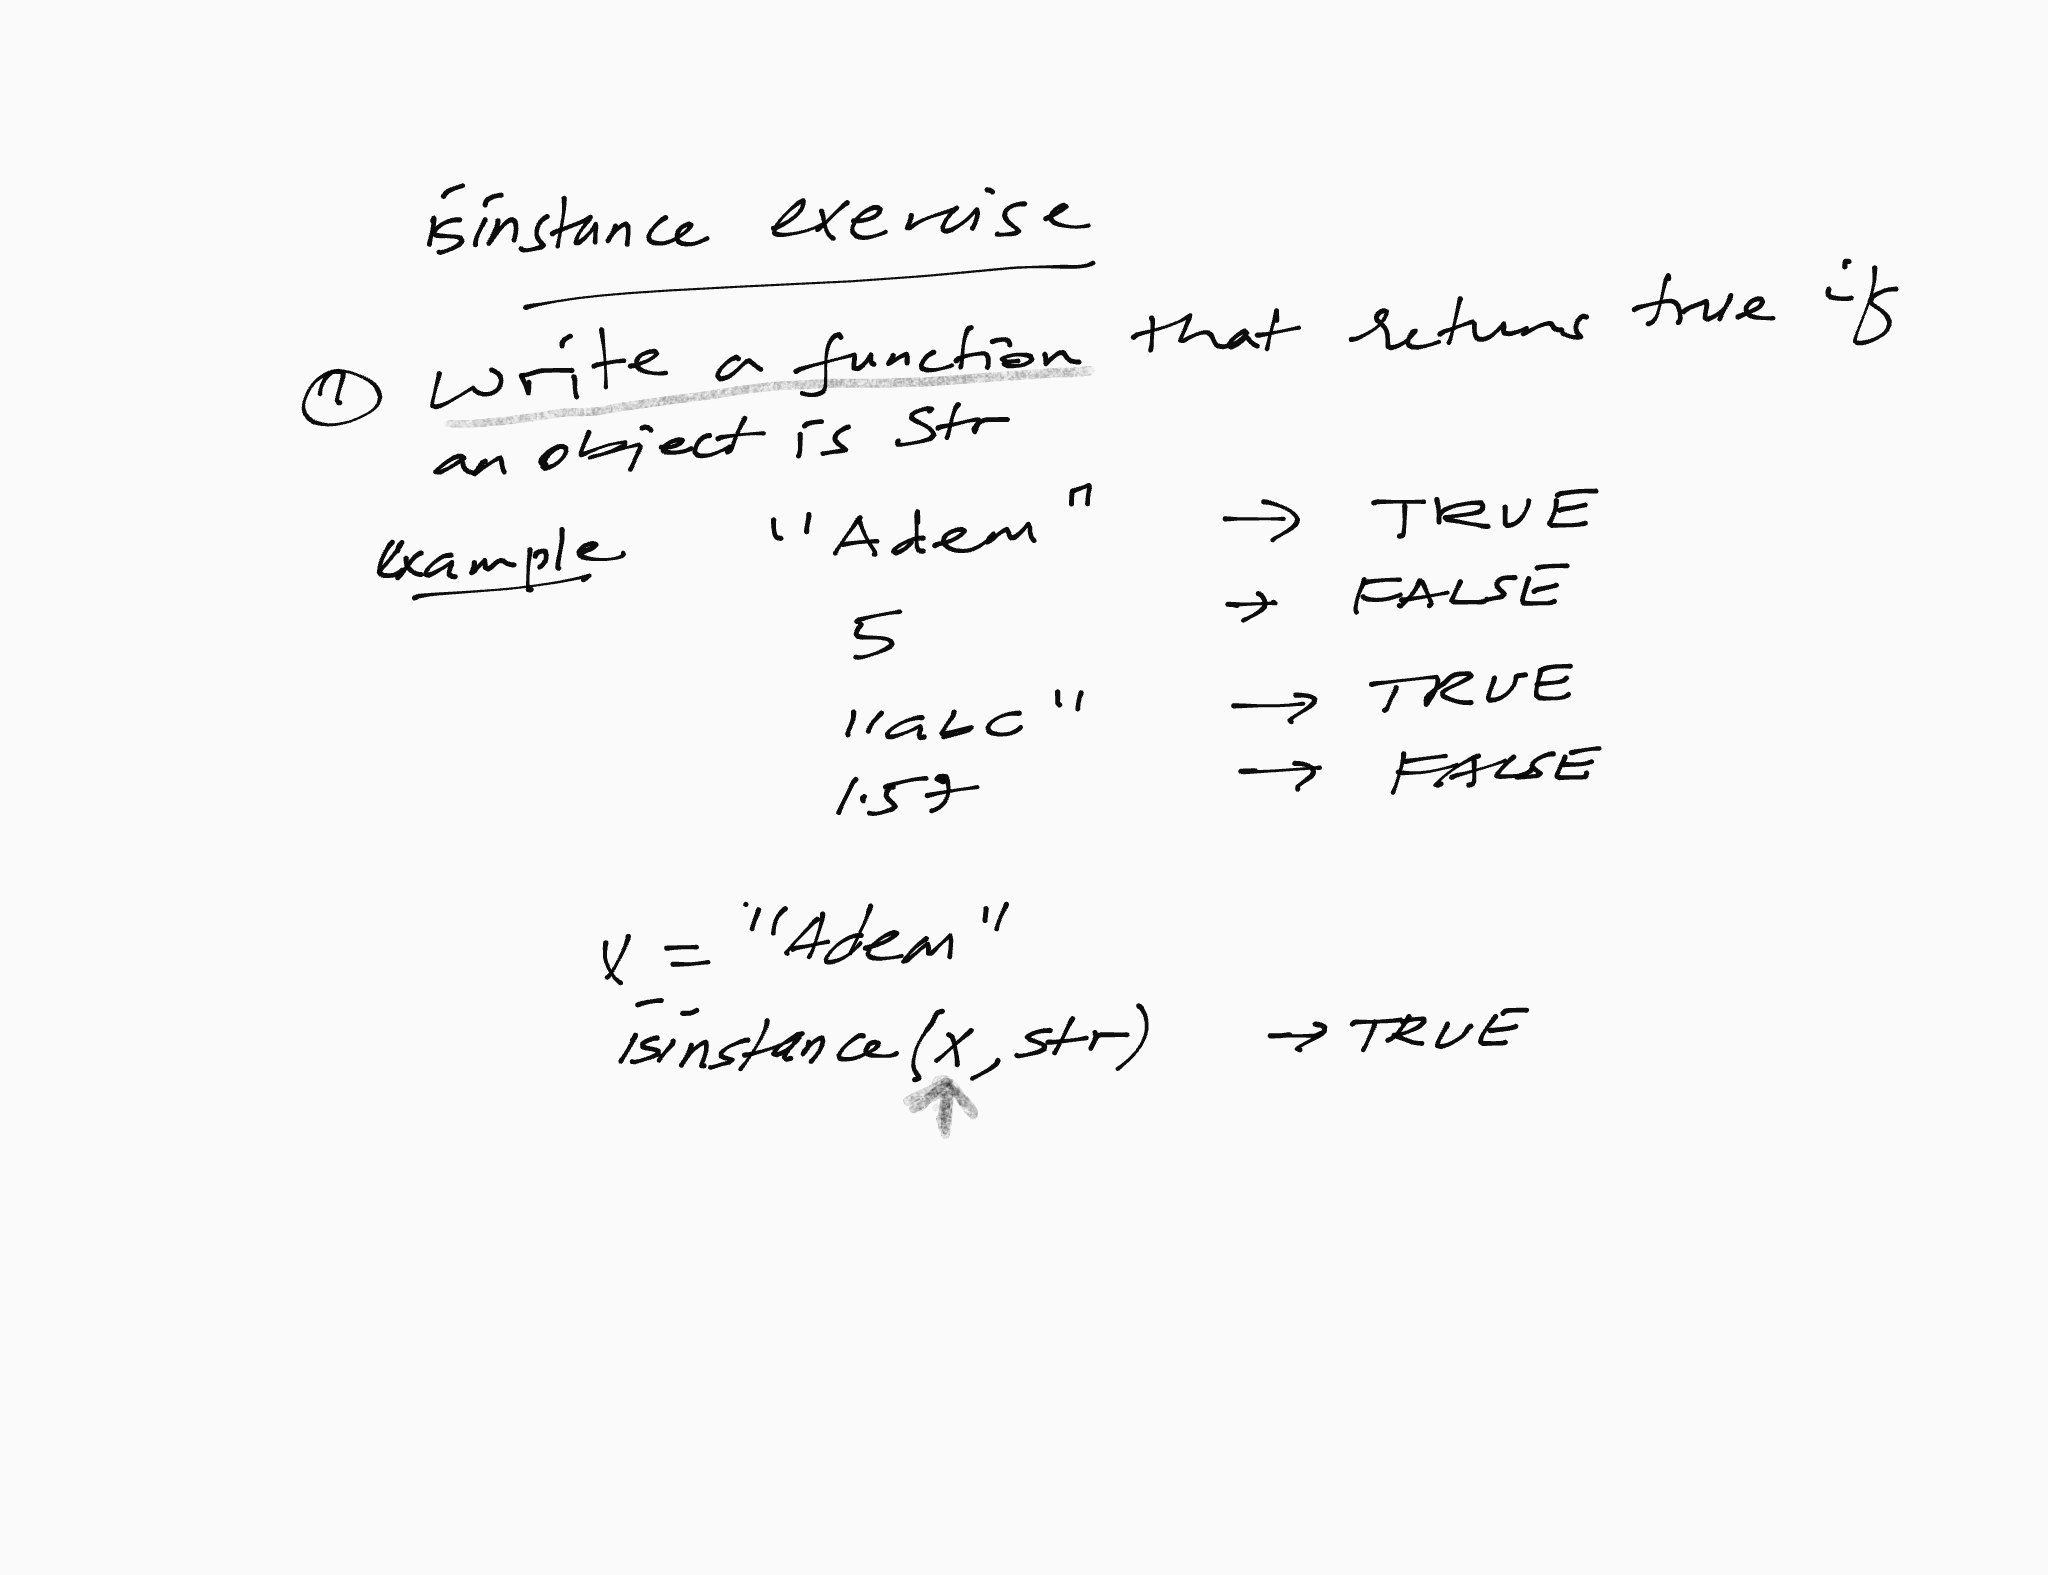 isinstance exercise
① write a function that returns true if
an object is str
Example "Adem" → TRUE
5 → FALSE
"abc" → TRUE
1.57 → FALSE
x = "Adem"
isinstance(x, str) → TRUE